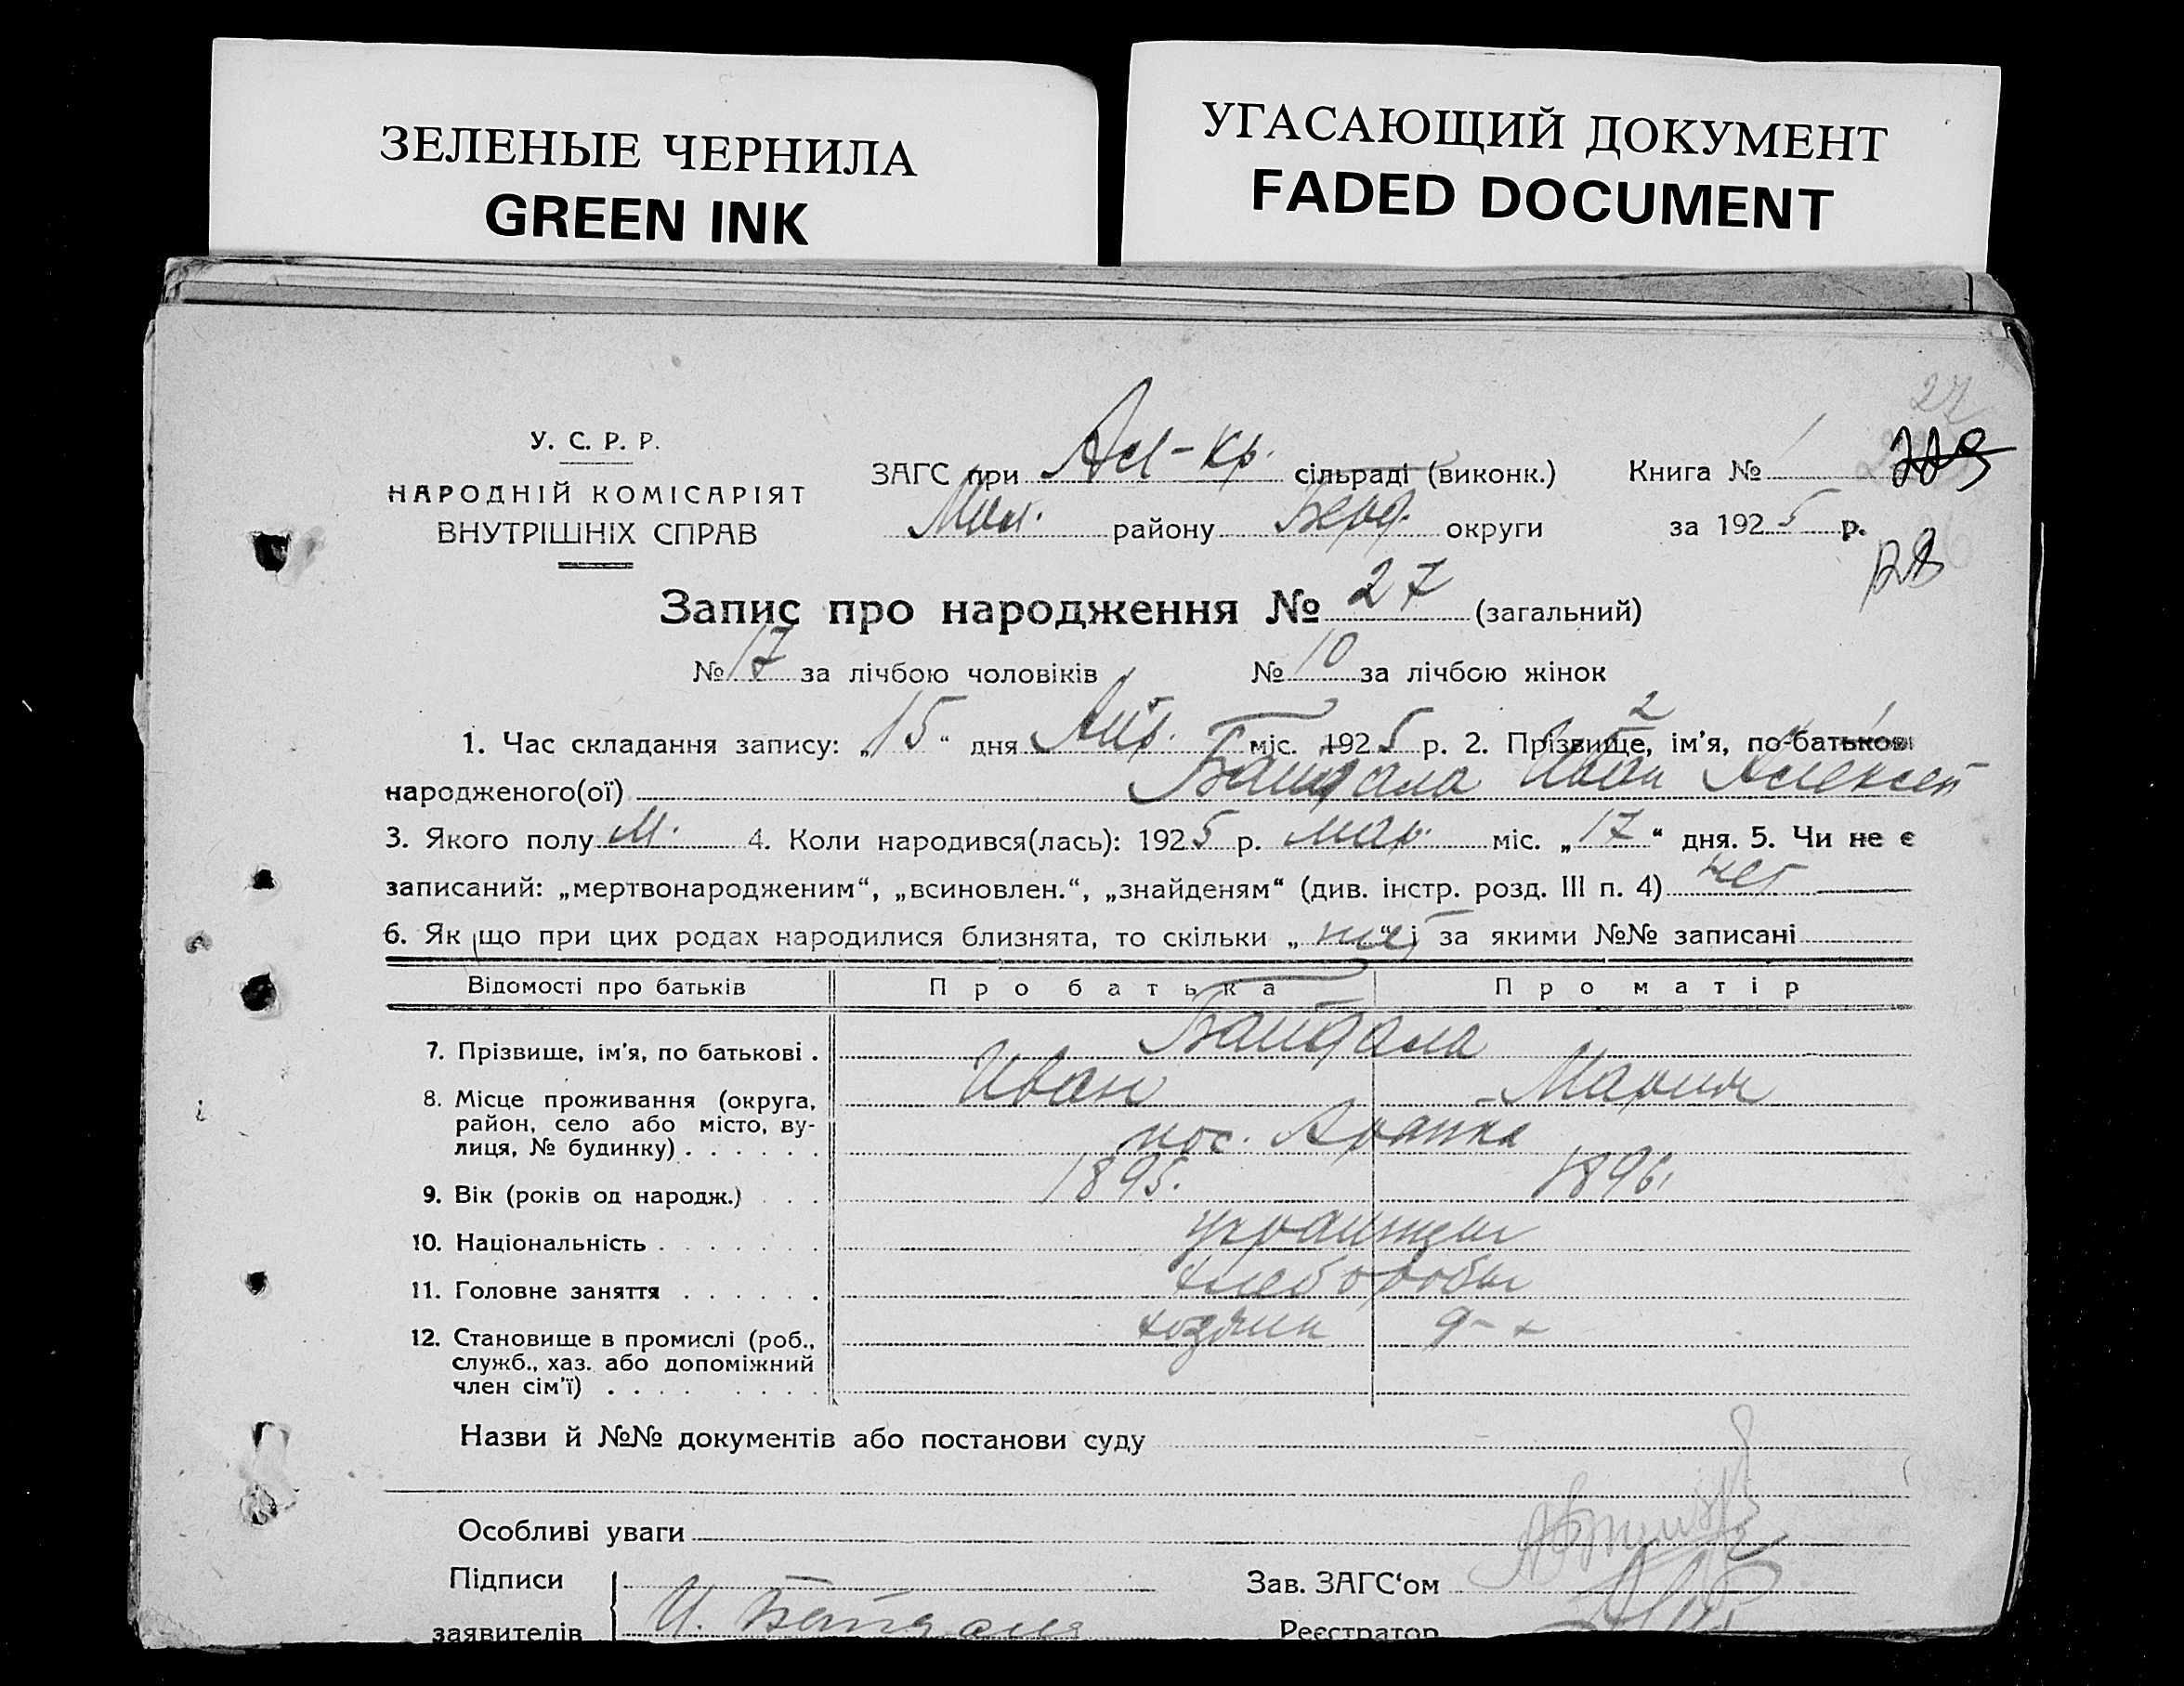 ЗЕЛЕНЫЕ ЧЕРНИЛА
GREEN INK
УГАСАЮЩИЙ ДОКУМЕНТ
FADED DOCUMENT
27
У. С. Р. Р.
НАРОДНІЙ КОМІСАРІЯТ
ВНУТРІШНІХ СПРАВ
ЗАГС при Ал-Кр. сільраді (виконк.) Книга № 1
району Берд. округи за 1925 р.
Запис про народження № 27 (загальний)
№ 17 за лічбою чоловіків № 10 за лічбою жінок
1. Час складання запису: „15“ дня Апр. міс. 1925 р. 2. Прізвище, ім'я, по-батькові
народженого(ої) Байдала Иван Алексей
3. Якого полу М. 4. Коли народився(лась): 1925 р. мар. міс. „17“ дня. 5. Чи не є
записаний: „мертвонародженим“, „всиновлен.“, „знайденям“ (див. інстр. розд. III п. 4) нет
6. Як що при цих родах народилися близнята, то скільки „нет“ і за якими №№ записані
Відомості про батьків Про батька Про матір
7. Прізвище, ім'я, по батькові . Байдала
Иван Мария
8. Місце проживання (округа,
район, село або місто, ву-
лиця, № будинку) . . . . . . пос.
9. Вік (років од народж.) . . . 1895. 1896.
10. Національність . . . . . . . украинцы
11. Головне заняття . . . . . . хлеборобы
12. Становище в промислі (роб.,
служб., хаз. або допоміжний
член сім'ї) . . . . . . . . хозяин
Назви й №№ документів або постанови суду
Особливі уваги
Підписи
заявителів И. Байдала
Зав. ЗАГС'ом
Реєстратор